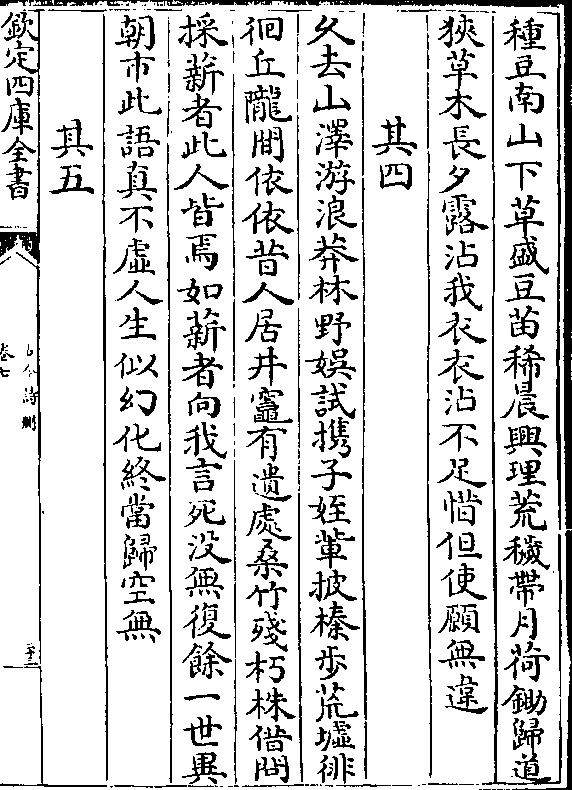 種豆南山下草盛豆苗稀晨興理荒穢帶月荷鋤歸道
狹草木長夕露沾我衣衣沾不足惜但使願無違
其四
久去山澤游浪莽林野娛試攜子姪軰披榛步荒墟徘
徊丘隴間依依昔人居井竈有遺處桑竹殘朽株借問
採薪者此人皆焉如薪者向我言死没無復餘一世異
朝市此語真不虛人生似幻化終當歸空無
其五
欽定四庫全書
古今詩刪
卷七